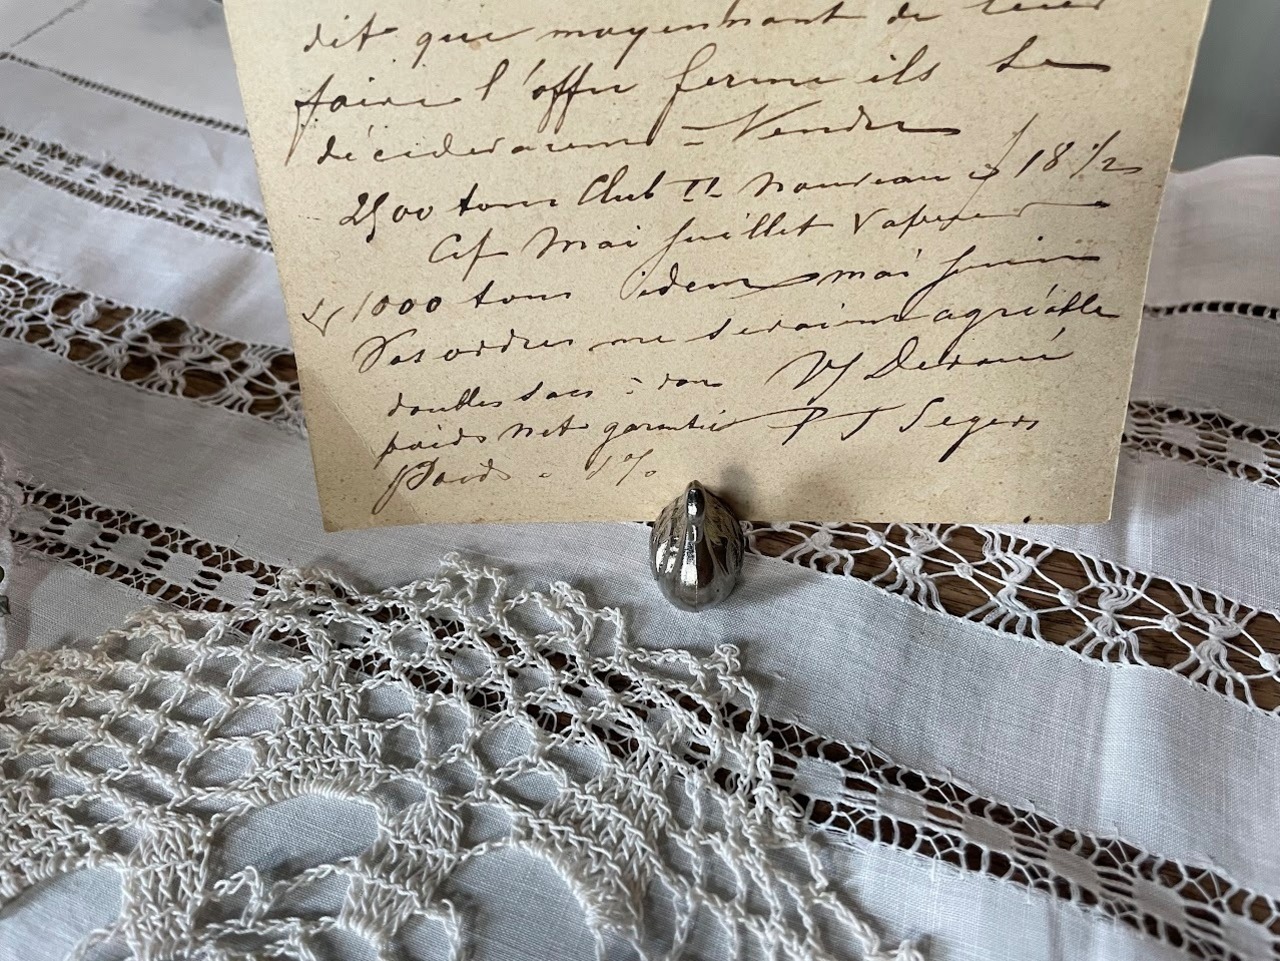 dit que moyennant de leur
faire l'offre ferme ils se
décideraient = Vendre
2500 tons Club II nouveau à f 18 1/2
Cif Mai Juillet Vapeur
1000 tons idem mai Juin
Vos ordres me seraient agréable
doubles sacs
poids net garantie PS Segers
Poids 1%